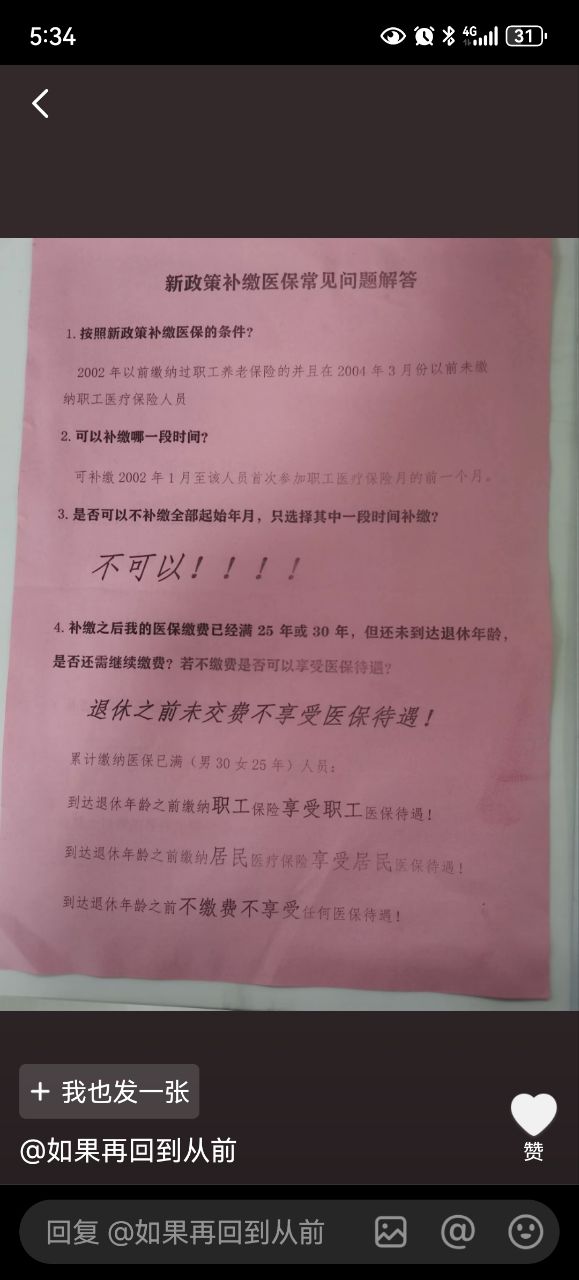 5:34
4G
31
新政策补缴医保常见问题解答
1. 按照新政策补缴医保的条件?
2002 年以前缴纳过职工养老保险的并且在 2004 年 3 月份以前未缴
纳职工医疗保险人员
2. 可以补缴哪一段时间?
可补缴 2002 年 1 月至该人员首次参加职工医疗保险月的前一个月。
3. 是否可以不补缴全部起始年月，只选择其中一段时间补缴?
不可以！！！！
4. 补缴之后我的医保缴费已经满 25 年或 30 年，但还未到达退休年龄，
是否还需继续缴费? 若不缴费是否可以享受医保待遇?
退休之前未交费不享受医保待遇！
累计缴纳医保已满（男 30 女 25 年）人员：
到达退休年龄之前缴纳职工保险享受职工医保待遇！
到达退休年龄之前缴纳居民医疗保险享受居民医保待遇！
到达退休年龄之前不缴费不享受任何医保待遇！
+ 我也发一张
赞
@如果再回到从前
回复 @如果再回到从前